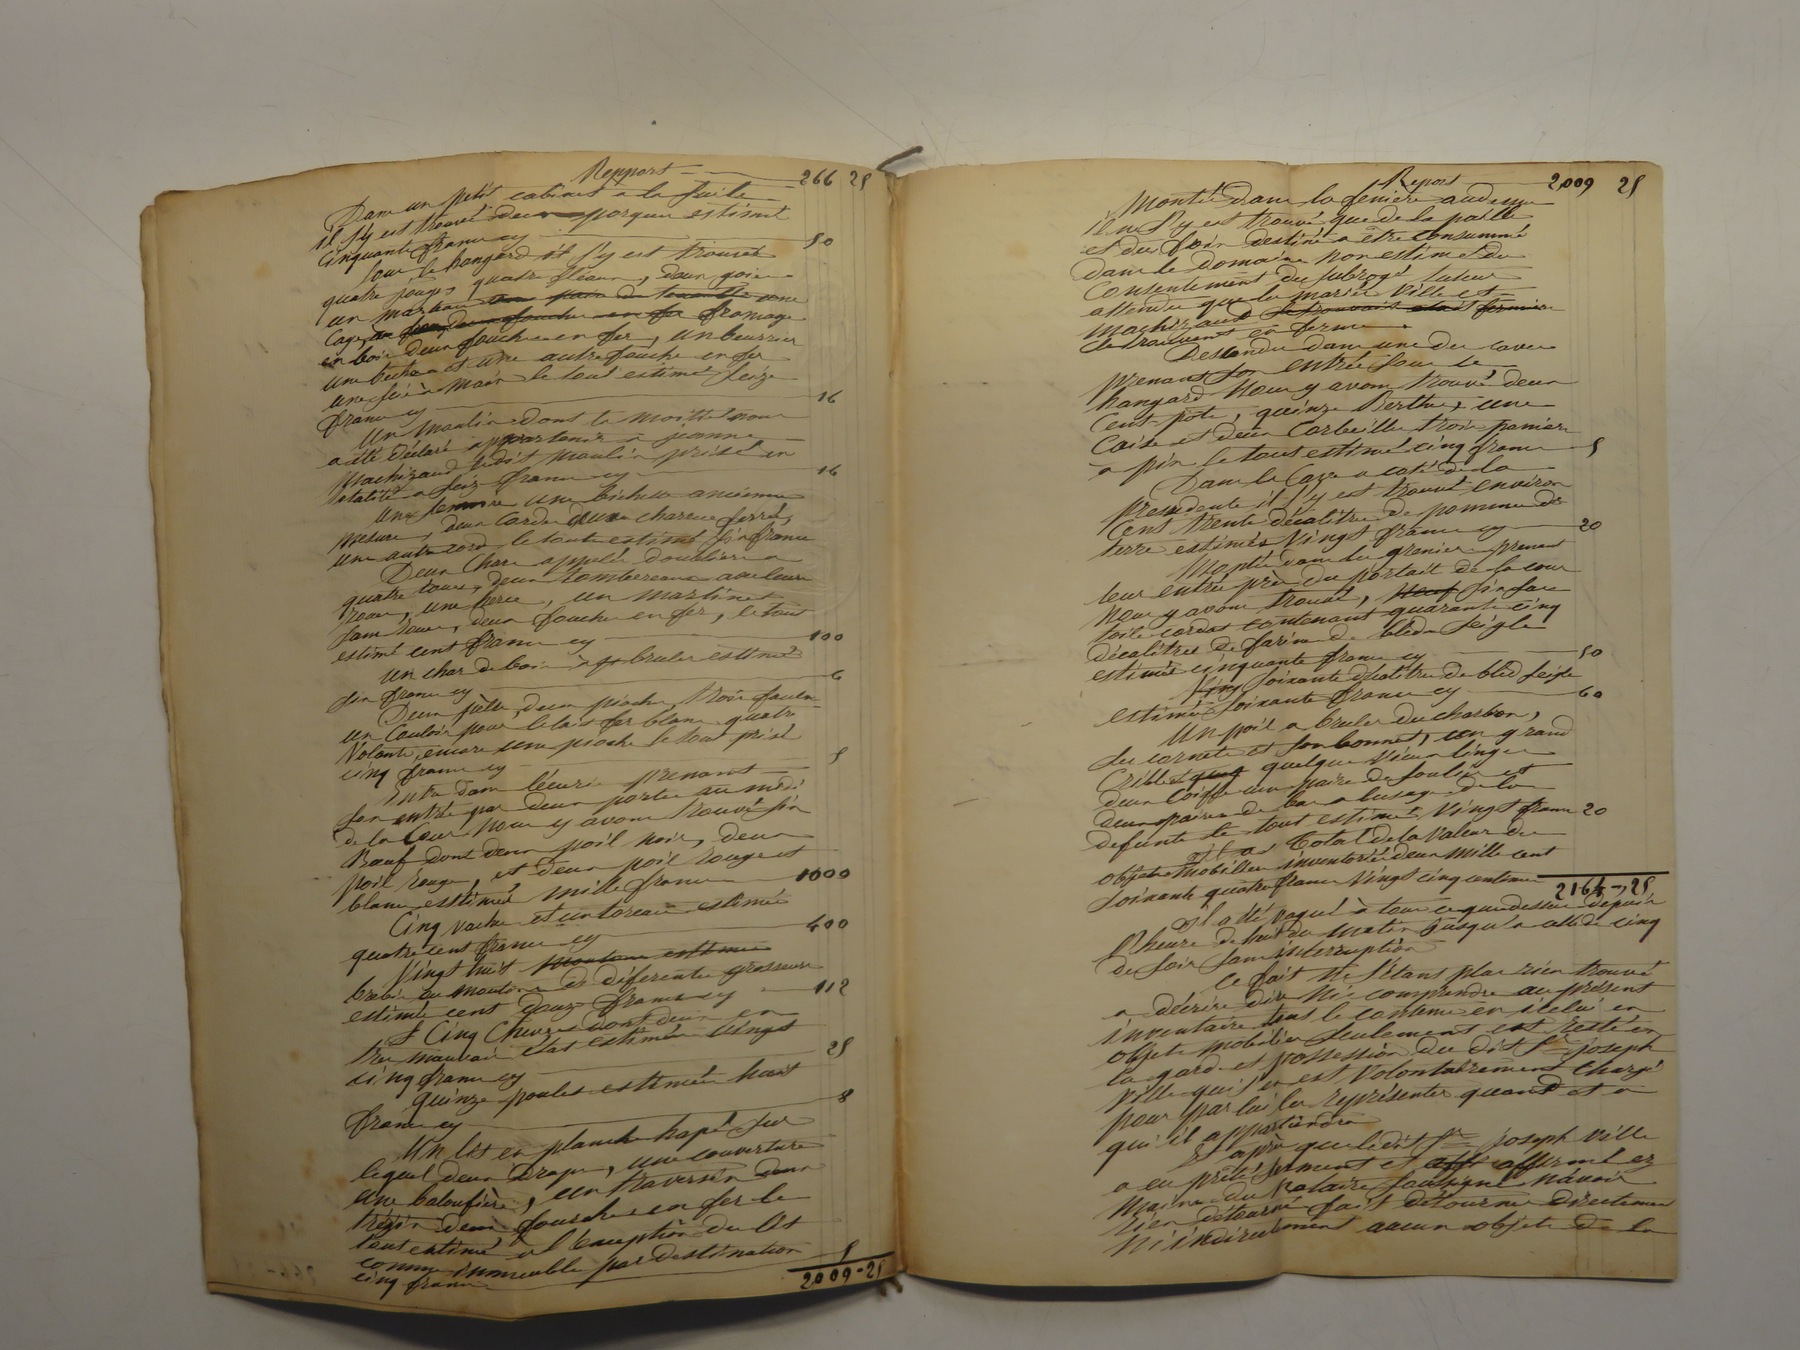 Repport 266 25
Dans un petit cabinet a la suite
il s'y est trouvé deux porques estimé
cinquante francs cy 50
Sous le hangard il s'y est trouvé
quatre jougs quatre fléaux, deux
un marteau une paire de tenaille une
cage, deux fourches en fer fromage
en bois deux fourches en fer, un beurrier
une bêche et une autre fourche en fer
une scie à main le tout estimé seize
francs cy 16
Un moulin dont la moitié nous
a été déclaré appartenir a jeanne
Machizaud ledit moulin prisé en
totalité a seize francs cy 16
Une une bichesse ancienne
mesure, deux cordes deux charrue ferrée,
une autre corde le tout estimé six francs
Deux Chars appelés doublière a
quatre roues, deux tombereaux avec leurs
roues, une herse, un martinet
sans roues, deux fourches en fer, le tout
estimé cent francs cy 100
Un char de bois a brûler estimé
six francs cy 6
Deux pelles, deux pioches, trois faulx
un Couloir pour le lait fer blanc quatre
Volants, encore une pioche le tout prisé
cinq francs cy 5
Entré dans l'écurie prenant
son entrée par deux portes au midi
de la Cour nous y avons trouvé six
Bœufs dont deux poil noir, deux
poil rouge, et deux poil rouge et
blanc estimés mille francs 1000
Cinq vaches et un toreau estimés
quatre cent francs cy 400
Vingt huit moutons estimés
brebis ou moutons de diférente grosseure
estimé cent douze francs cy 112
Cinq Chèvres dont deux en
très mauvais état estimées vingt
cinq francs cy 25
quinze poules estimées huit
francs cy 8
Un lit en planche hapé sur
lequel deux Draps, une couverture
une baloufière, un traversin deux
deux fourches en fer le
tout estimé a l'exception du lit
comme immeuble par destination
cinq francs 5
2009-25
Report 2009 25
Monté dans la fenière audessus
il ne s'y est trouvé que de la paille
et du foin destiné a être consummé
dans le domaine non estimé du
Contentement du subrogé tuteur
attendu que les mariés Ville et
Machizaud se trouvait était fermier
se trouvent en ferme.
Descendu dans une des caves
prenant son entrée sous le
hangard nous y avons trouvé deux
Cent pots, quinze Berthes, une
Caise et deux Corbeilles trois paniers
a pin le tout estimé cinq francs 5
Dans la Cave a coté de la
presedente il s'y est trouvé environ
Cent trente décalitre de pomme de
terre estimés vingt francs cy 20
Monté dans les greniers prenant
leur entrée près du portail de la cour
nous y avons trouvé, neuf six sacs
toile cordat contenant quarante cinq
décalitres de farine de bled seigle
estimée cinquante francs cy 50
cinq soixante décalitre de bled seigle
estimés soixante francs cy 60
Un poil a bruler du charbon,
des cornets et son bonnet, un grand
Crible, quelque vieux linges
deux Coiffe une paire de souliers et
deux paires de bas a l'usage de la
defunte le tout estimé vingt francs 20
Total de la Valeur des
objets mobiliers inventoriés deux mille cent
soixante quatre francs vingt cinq centimes 2164-25
Il a été vaqué à tout ce que dessus depuis
l'heure de huit du matin jusqu'a celle de cinq
du soir sans interruption
Ce fait ne s'étant plus rien trouvé
a décrire dire ni comprendre au présent
inventaire tout le contenu en icelui en
objets mobiliers seulement est resté en
la garde et possession du dit Sr Joseph
Ville qui s'en est volontairement chargé
pour par lui les représenter quand et a
qui il appartiendra
Et après que ledit Sr Joseph Ville
a eu prêté serment et aff affirmé ez
mains du Notaire soussigné n'avoir
rien détourné fait détourner directement
ni indirectement aucun objets de la